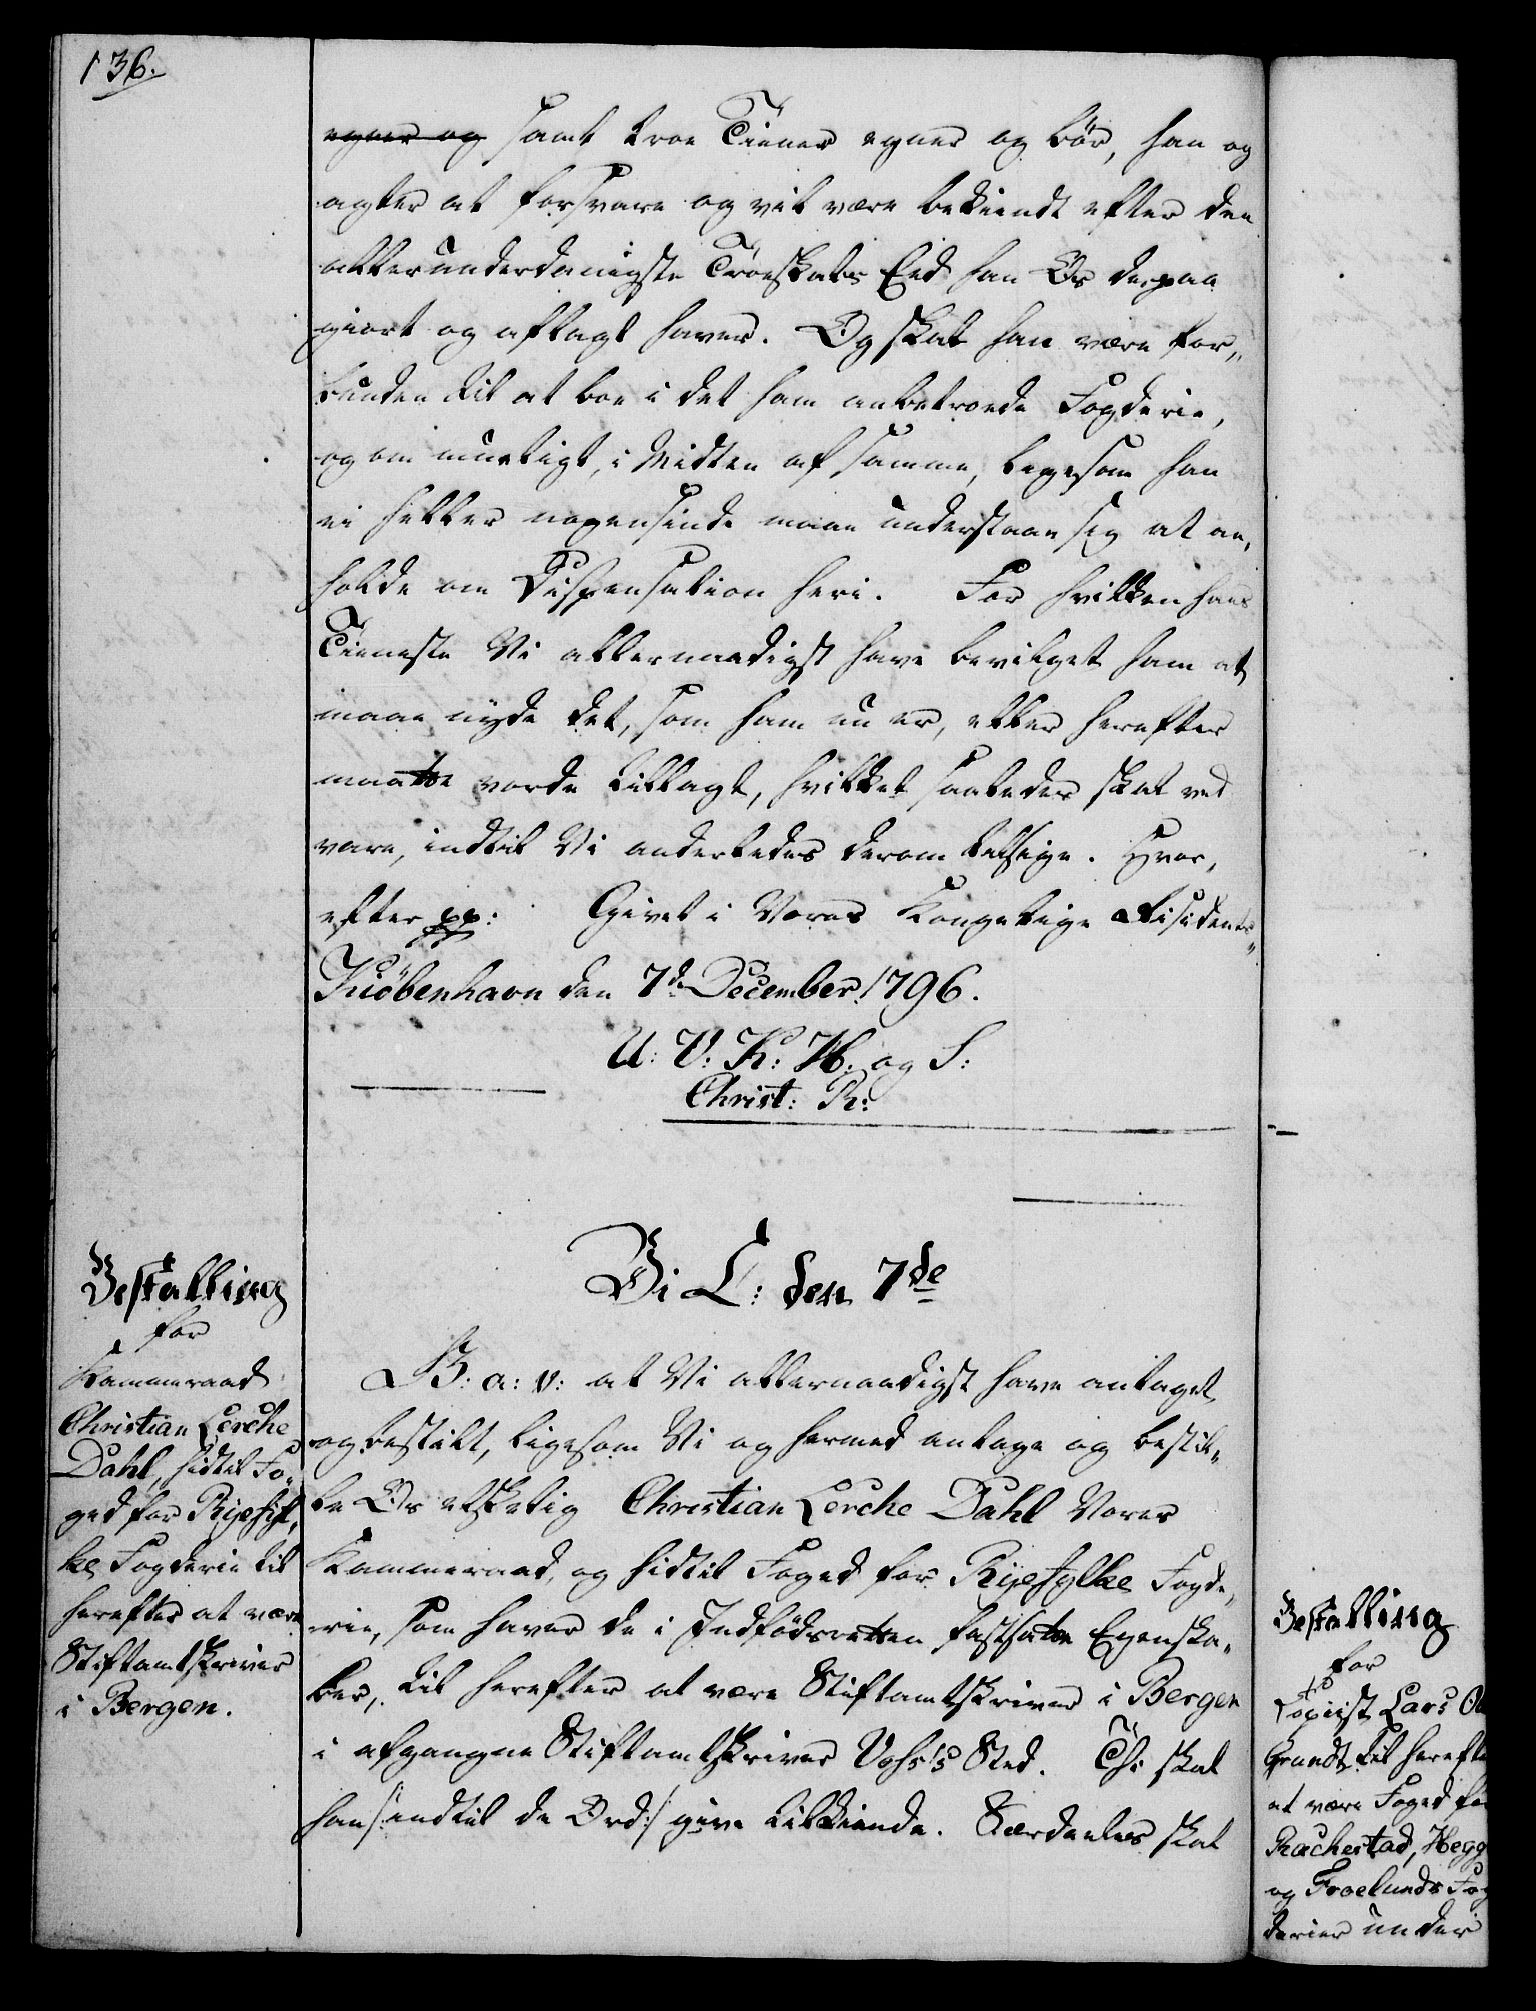 136.
egner og samt troe Tiener egner og bør, han og
agter at forsvare og vil være bekiendt efter den
allerunderdanigste Troeskabs Eed han Os derpaa
giort og aflagt haver. Og skal han være for„
bunden til at boe i det ham anbetroede Fogderie,
og om mueligt, i Midten af samme, ligesom han
ei heller nogensinde maae understaae sig at an„
holde om Dispensation heri. For hvilken hans
Tieneste Vi allernaadigst have bevilget ham at
maae nyde det, som ham nu er, eller herefter
maatte vorde tillagt, hvilket saaledes skal ved
vare, indtil Vi anderledes derom tilsige. Hvor„
efter pp: Givet i Vores Kongelige Residents„
Kiøbenhavn den 7de December 1796.
U: V: K: H: og S:
Christ: R:
Bestalling
for
Kammeraad
Christian Lerche
Dahl, hidtil Fo„
ged for Ryefyl„
ke Fogderie til
herefter at være
Stiftamtskriver
i Bergen.
Di L: den 7de
B: a: v: at Vi allernaadigst have antaget
og bestilt, ligesom Vi og hermed antage og bestil„
le Os elskelig Christian Lerche Dahl Vores
Kammeraad, og hidtil Foged for Ryefylke Fogde„
rie, som haver de i Indfødsretten fastsatte Egenska„
ber, til herefter at være Stiftamtskriver i Bergen
i afgangne Stiftamtskriver Vohs's Sted. Thi skal
han /:indtil de Ord:/ give tilkiende. Særdeeles skal
Bestalling
for
Copiist Lars
Grandt til herefte
at være Foged for
Rachestad, Hegg
og Froelunds Fog
derier under